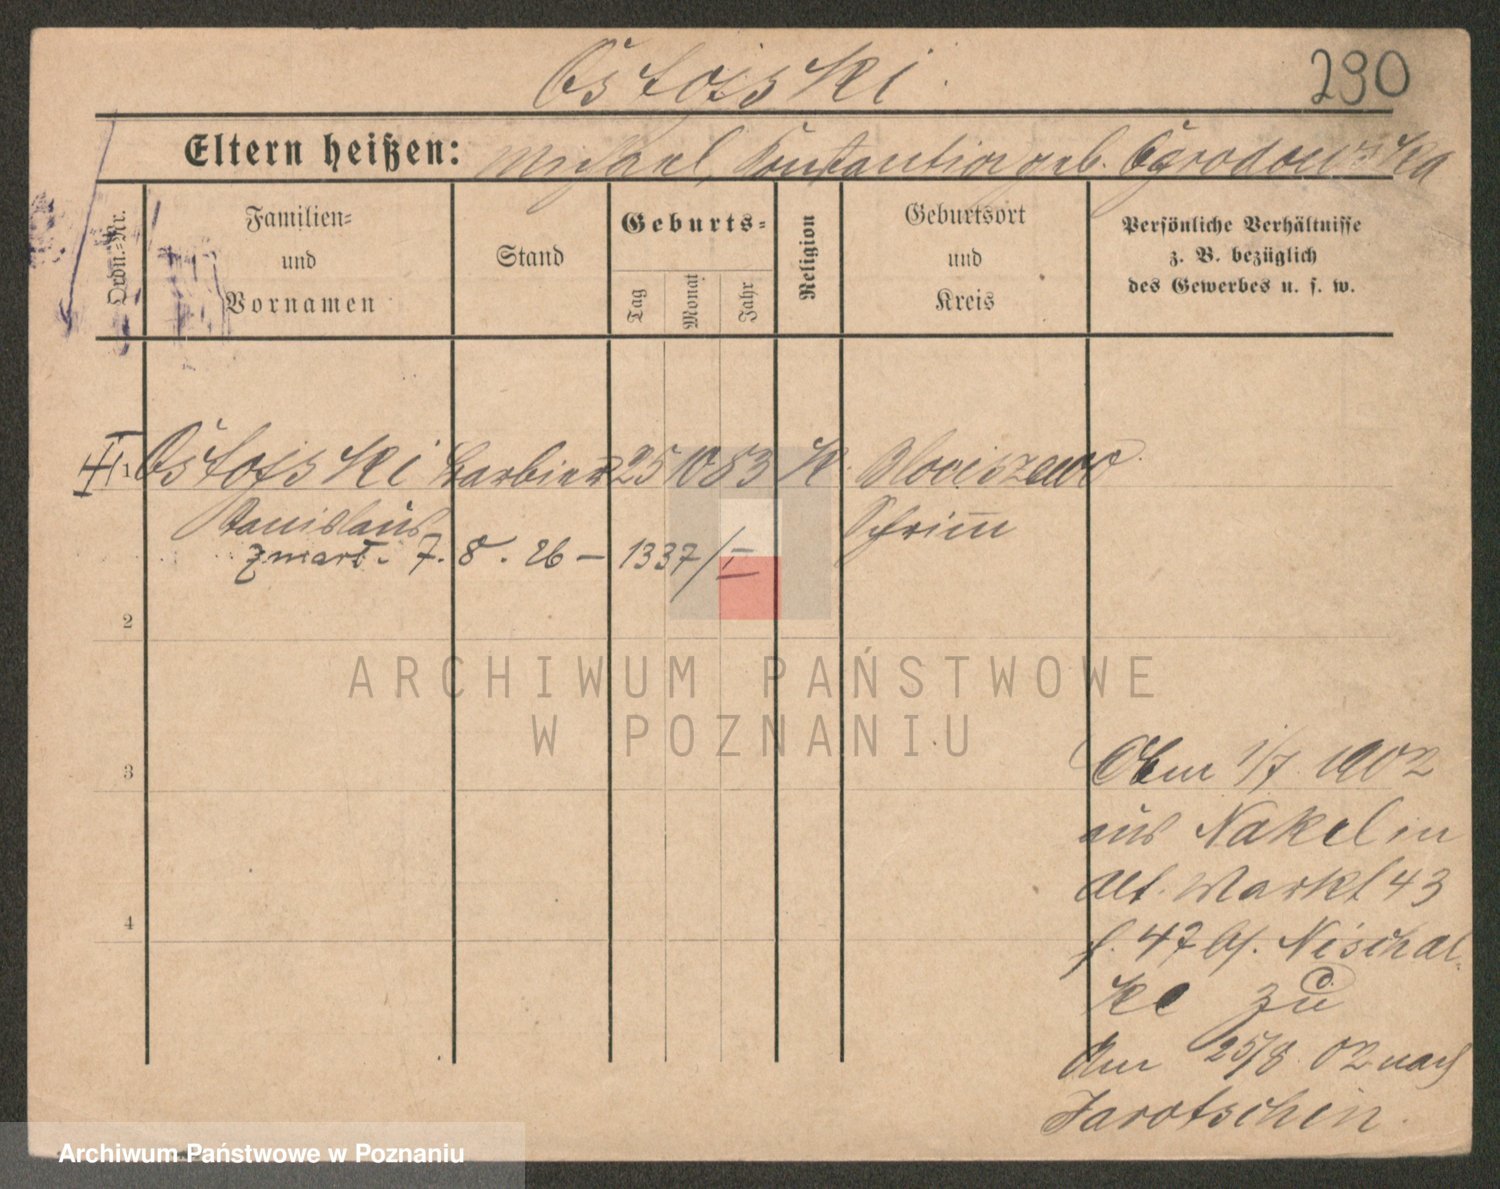 Ostojski.
290
Eltern heißen: Michael, Konstantia geb. Ogrodowska
Ordn.-Nr.
Familien-
und
Vornamen
Stand
Geburts-
Tag
Monat
Jahr
Religion
Geburtsort
und
Kreis
Persönliche Verhältnisse
z. B. bezüglich
des Gewerbes u. s. w.
1 Ostojski Barbier 25 10 53 K.
Stanislaus Schrimm
zmarł. 7. 8. 26 – 1337/I
2
ARCHIWUM PAŃSTWOWE
W POZNANIU
3
1/7. 1902
aus Nakel in
Alt. Markt 43
zu
4
Am 25/8. 02 nach
Jarotschin.
Archiwum Państwowe w Poznaniu